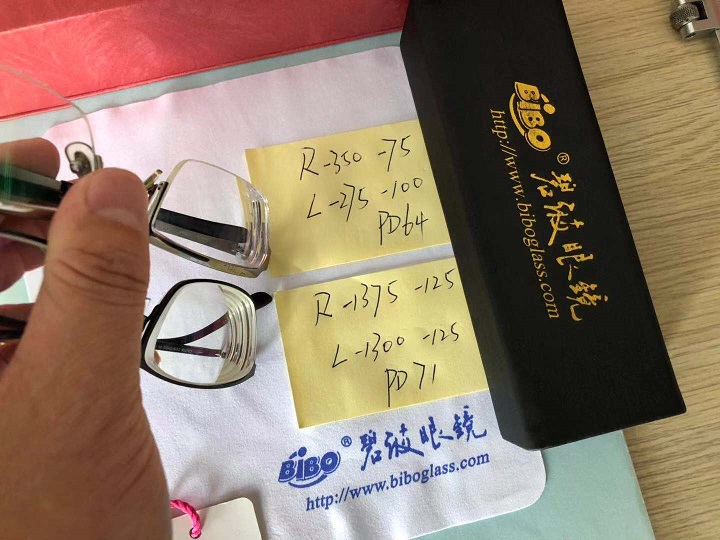 R -350 -75
L -275 -100
PD64
R -1375 -125
L -1300 -125
PD71
BiBO® 碧波眼鏡
http://www.biboglass.com
BiBO® 碧波眼鏡
http://www.biboglass.com